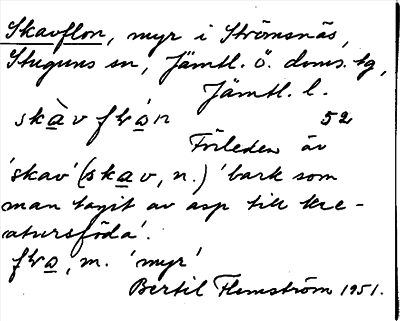 Skavflon, myr i Strömsnäs,
Stuguns sn, Jämtl. ö. doms. tg,
Jämtl. l.
skàv flo̱n 52
Förleden är
'skav' (skav, n.) 'bark som
man tagit av asp till kre-
atursföda'.
flo, m. 'myr'
Bertil Flemström 1951.